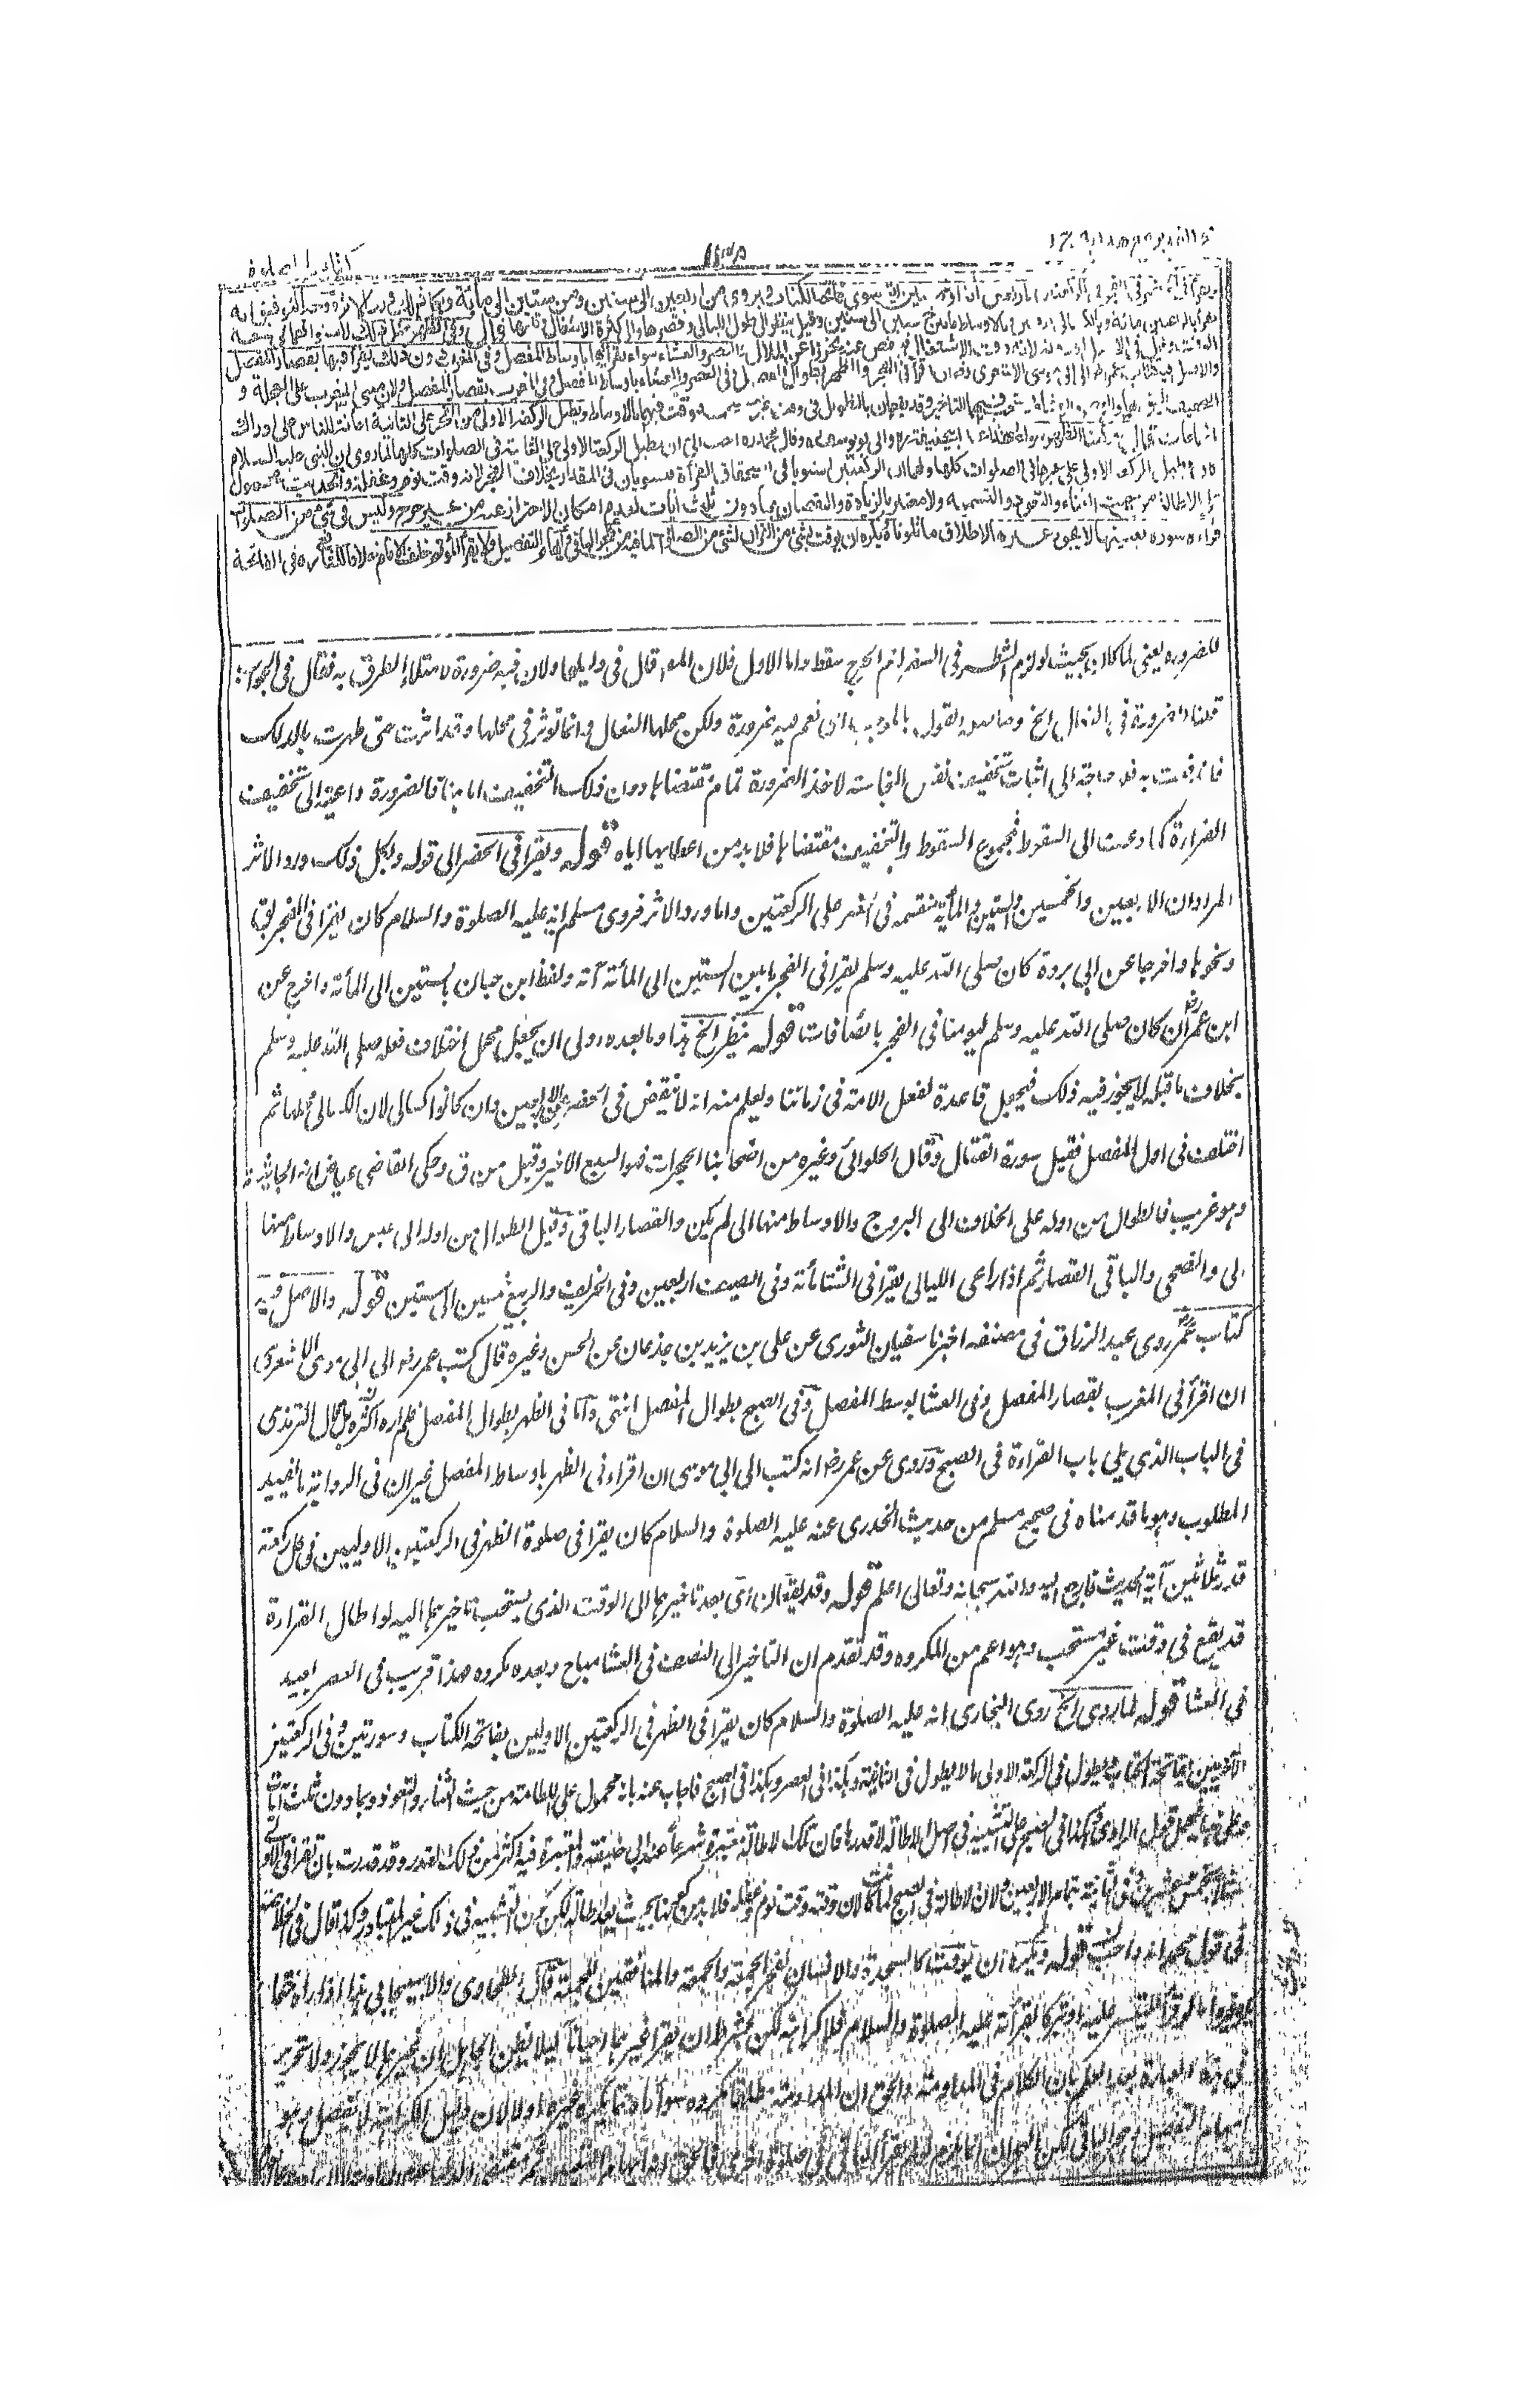 كتاب الصلوة
ويقرأ في الحضر في الفجر في الركعتين باربعين آية او خمسين آية سوى فاتحة الكتاب ويروى من اربعين الى ستين ومن ستين الى مائة وبكل ذلك ورد الاثر ووجه التوفيق انه
يقرأ بالراغبين مائة وبالكسالى اربعين وبالاوساط ما بين خمسين الى ستين وقيل ينظر الى طول الليالى وقصرها والى كثرة الاشغال وقلتها قال وفى الظهر مثل ذلك لاستوائهما فى سعة
الوقت وقال فى الاصل او دونه لانه وقت الاشتغال فينقص عنه تحرزا عن الملال والعصر والعشاء سواء يقرأ فيهما باوساط المفصل وفى المغرب دون ذلك يقرأ فيها بقصار المفصل
والاصل فيه كتاب عمر الى ابى موسى الاشعرى ان اقرأ فى الفجر والظهر بطوال المفصل وفى العصر والعشاء باوساط المفصل وفى المغرب بقصار المفصل ولان مبنى المغرب على العجلة و
التخفيف اليق بها والعصر والعشاء يستحب فيهما التاخير وقد يقعان بالتطويل فى وقت غير مستحب فيوقت فيهما بالاوساط ويطيل الركعة الاولى من الفجر على الثانية اعانة للناس على ادراك
الجماعات قال وركعتا الظهر سواء وهذا عند ابى حنيفة وابى يوسف وقال محمد احب الى ان يطيل الركعة الاولى على الثانية فى الصلوات كلها لما روى ان النبى عليه السلام
كان يطيل الركعة الاولى على غيرها فى الصلوات كلها ولهما ان الركعتين استويا فى استحقاق القرأة فيستويان فى المقدار بخلاف الفجر لانه وقت نوم وغفلة والحديث محمول
على الاطالة من حيث الثناء والتعوذ والتسمية ولا معتبر بالزيادة والنقصان بما دون ثلث ايات لعدم امكان الاحتراز عنه من غير حرج وليس فى شئ من الصلوات
قراءة سورة بعينها لا يجوز غيرها لاطلاق ما تلونا ويكره ان يوقت بشئ من القرآن لشئ من الصلوات لما فيه من هجر الباقى وايهام التفضيل ولا يقرأ المؤتم خلف الامام خلافا للشافعى ره فى الفاتحة
للضرورة يعنى لما كان بحيث لو لزم الشطر فى السفر لزم الحرج سقط واما الاول فلان المص قال فى دليلها ولان فيه ضرورة لامتلاء الطرق به فقال فى الجواب
قلنا الضرورة فى النعال الخ وحاصله القول بالموجب اى نعم فيه ضرورة ولكن محلها النعال وانما تؤثر فى محلها وقد اثرت حتى طهرت بالدلك
فاندفعت به فلا حاجة الى اثبات تخفيف نفس النجاسة لاخذ الضرورة تمام مقتضاها دون ذلك التخفيف اما هنا فالضرورة داعية الى تخفيف
القراءة كما دعت الى السقوط فمجموع السقوط والتخفيف مقتضاها فلا بد من اعطائها اياه قوله ويقرأ فى الحضر الى قوله وبكل ذلك ورد الاثر
المراد ان الاربعين والخمسين والستين والمأية منقسمة فى الحضر على الركعتين واما ورد الاثر فروى مسلم انه عليه الصلوة والسلام كان يقرأ فى الفجر بق
ونحوها واخرجا عن ابى برزة كان صلى الله عليه وسلم يقرأ فى الفجر ما بين الستين الى المأئة آية ولفظ ابن حبان بالستين الى المأئة واخرج عن
ابن عمر ان كان صلى الله عليه وسلم ليؤمنا فى الفجر بالصافات قوله ينظر الخ هذا وما بعده اولى ان يجعل محمل اختلاف فعله صلى الله عليه وسلم
بخلاف ما قبله لا يجوز فيه ذلك فيجعل قاعدة لفعل الائمة فى زماننا ويعلم منه انه لا ينقص فى الحضر عن الاربعين وان كانوا كسالى لان الكسالى محملها ثم
اختلف فى اول المفصل فقيل سورة القتال وقال الحلوائى وغيره من اصحابنا الحجرات فهو السبع الاخير وقيل من ق وحكى القاضى عياض انه الجاثية
وهو غريب فالطوال من اوله على الخلاف الى البروج والاوساط منها الى لم يكن والقصار الباقى وقيل الطوال من اوله الى عبس والاوساط منها
الى والضحى والباقى القصار ثم اذا راعى الليالى يقرأ فى الشتا مأئة وفى الصيف اربعين وفى الخريف والربيع خمسين الى ستين قوله والاصل فيه
كتاب عمر روى عبد الرزاق فى مصنفه اخبرنا سفيان الثورى عن على بن يزيد بن جدعان عن الحسن وغيره قال كتب عمر رضه الى ابى موسى الاشعرى
ان اقرأ فى المغرب بقصار المفصل وفى العشا بوسط المفصل وفى الصبح بطوال المفصل انتهى واما فى الظهر بطوال المفصل فلم اره اكثره بل قال الترمذى
فى الباب الذى يلى باب القراءة فى الصبح وروى عن عمر رضه انه كتب الى ابى موسى ان اقراء فى الظهر باوساط المفصل غير ان فى الرواية ما يفيد
المطلوب وهو ما قدمناه فى صحيح مسلم من حديث الخدرى عنه عليه الصلوة والسلام كان يقرأ فى صلوة الظهر فى الركعتين الاوليين فى كل ركعة
قدر ثلاثين آية الحديث فارجع اليه والله سبحانه وتعالى اعلم قوله وقد يقعان اى بعد تاخيرهما الى الوقت الذى يستحب تاخيرهما اليه لو اطال القراءة
قد يقع فى وقت غير مستحب وهو اعم من المكروه وقد تقدم ان التاخير الى النصف فى العشا مباح وبعده مكروه هذا قريب فى العصر بعيد
فى العشا قوله لما روى الخ روى البخارى انه عليه الصلوة والسلام كان يقرأ فى الظهر فى الركعتين الاوليين بفاتحة الكتاب وسورتين وفى الركعتين
الاخريين بفاتحة الكتاب يطول فى الركعة الاولى ما لا يطول فى الثانية وهكذا فى العصر وهكذا فى الصبح فاجاب عنه بانه محمول على الاطالة من حيث الثناء والتعوذ وبما دون ثلث آيات
قول الراوى وهكذا فى الصبح على التشبيه فى اصل الاطالة لا قدرها فان تلك الاطالة معتبرة شرعا عند ابى حنيفة
الاربعين ولان الاطالة فى الصبح لما كانت لان وقته وقت نوم وغفلة فلا بد من
قول محمد انه احب قوله ويكره ان يوقت كالسجدة والانسان لفجر الجمعة والجمعة والمنافقين للجمعة قال الطحاوى والاسبيجابى هذا اذا رآه حتما
بقرأته عليه الصلوة والسلام فلا كراهة لكن بشرط ان يقرأ غيرهما احيانا لئلا يظن الجاهل ان غيرهما لا يجوز ولا تحرير
فى هذه العبارة بعد العلم بان الكلام فى المداومة والحق ان المداومة مطلقا مكروه سواء رآه حتما يكره غيره اولا لان دليل الكراهة لا يفصل وهو
ايهام التفضيل وهجر الباقى لكن الهجران انما يلزم لو لم يقرأ الباقى فى صلوة اخرى